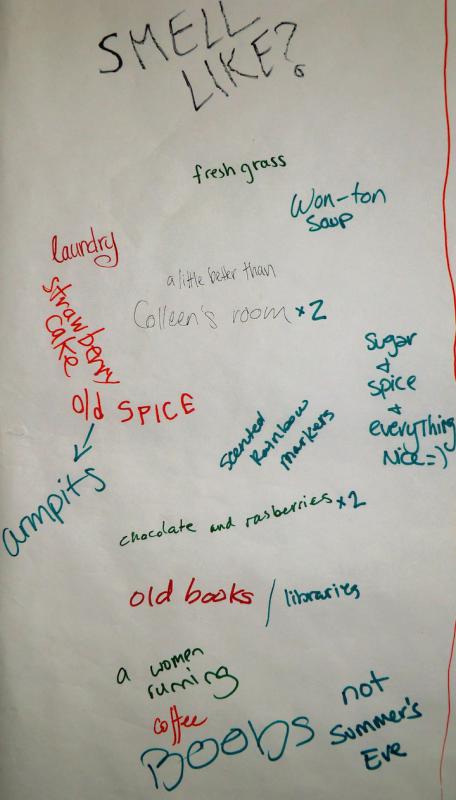 SMELL
LIKE?
fresh grass
Won-ton
Soup
laundry
a little better than
Colleen's room x2
strawberry
cake
Sugar
+
spice
+
everything
Nice=)
Old SPICE
scented
Rainbow
markers
armpits
chocolate and rasberries x2
old books / libraries
a women
running
coffee
Boobs
not
Summer's
Eve